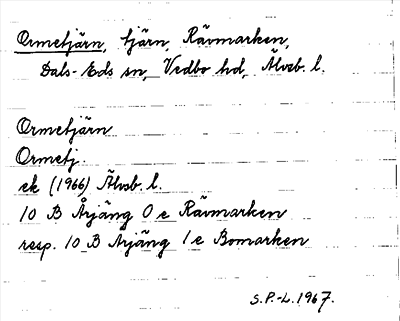 Ormetjärn, tjärn, Rävmarken,
Dals-Eds sn, Vedbo hd, Älvsb. l.
Ormetjärn
Ormetj.
ek (1966) Älvsb. l.
10 B Årjäng 0 e Rävmarken
resp. 10 B Årjäng 1 e Bomarken
S.P.-L. 1967.